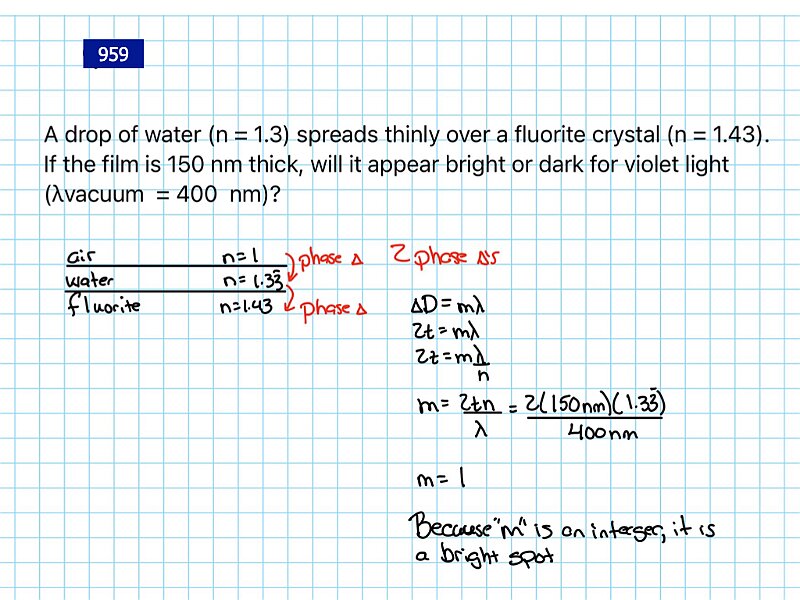 959
A drop of water (n = 1.3) spreads thinly over a fluorite crystal (n = 1.43).
If the film is 150 nm thick, will it appear bright or dark for violet light
(λvacuum = 400 nm)?
air n=1 phase Δ
water n= 1.33̄
fluorite n=1.43 phase Δ
2 phase Δ's
ΔD = mλ
2t = mλ
2t = mλ/n
m = 2tn/λ = 2(150nm)(1.33̄)/400nm
m = 1
Because "m" is an interger, it is
a bright spot